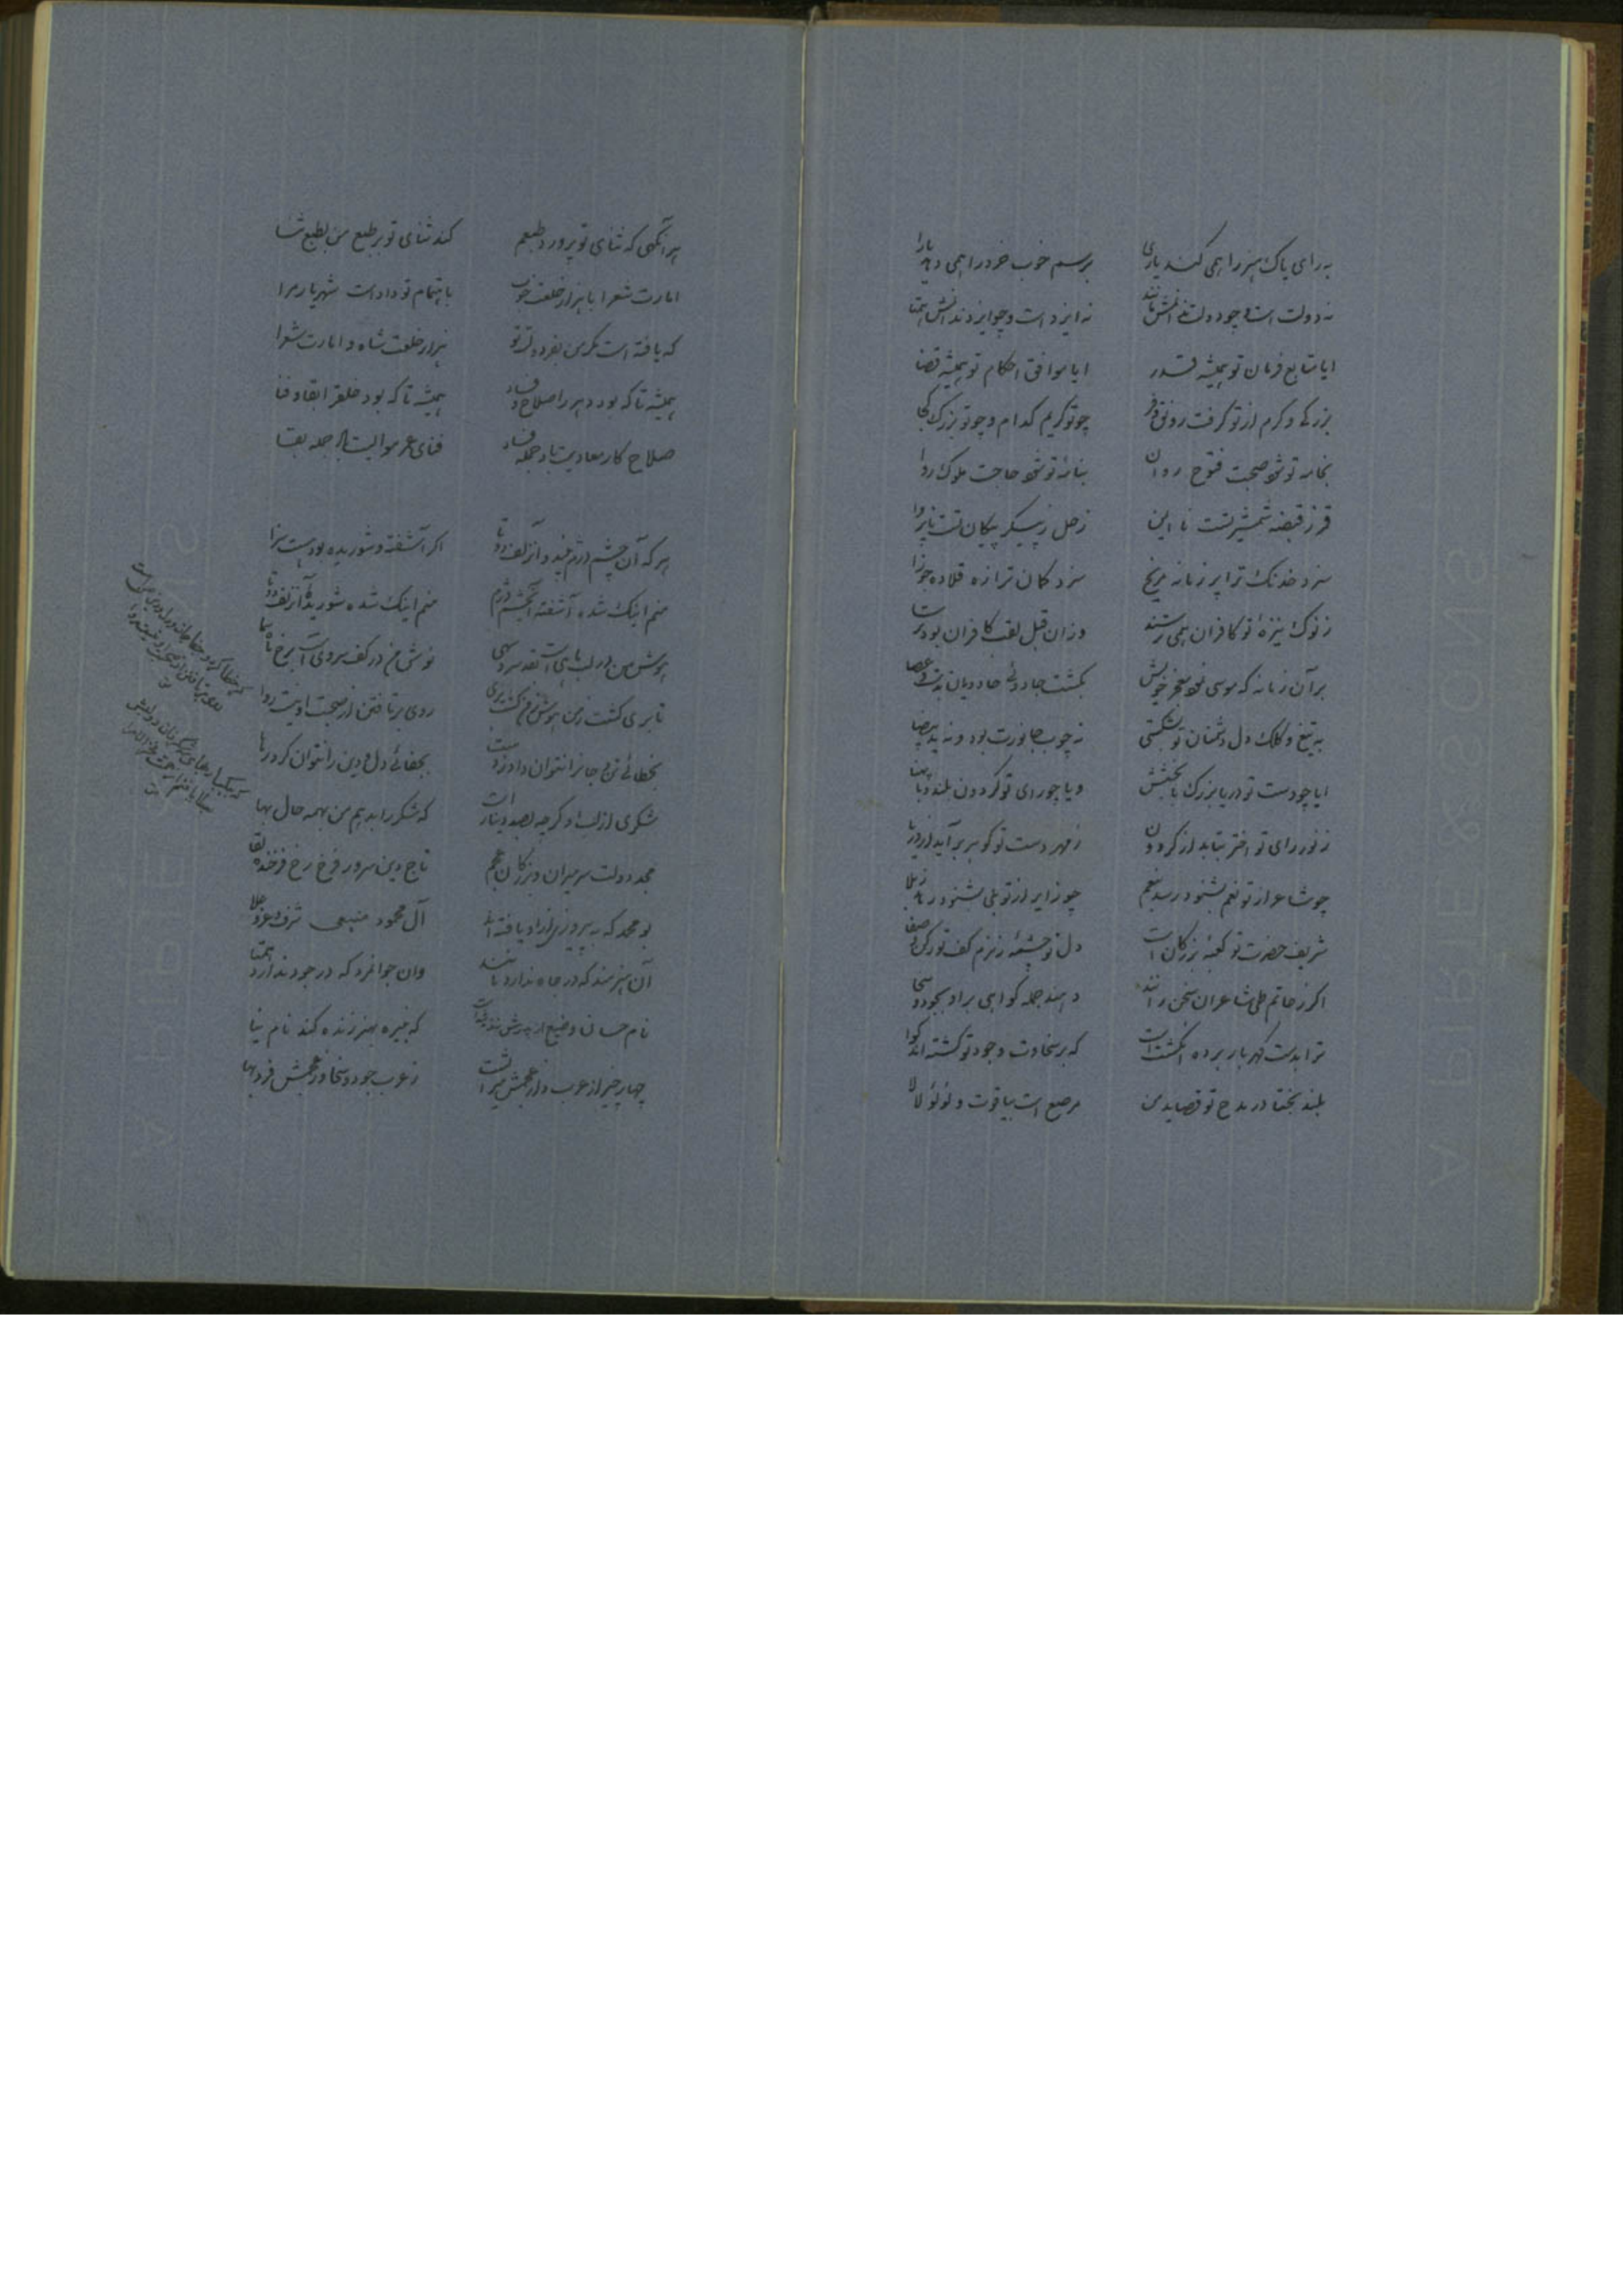 به رای پاک هنر را همی کند یاری برسم خوب خرد را همی دهد یارا
نه دولت است و چو دولت ندانمش مانند نه ایزد است و چو ایزد ندانمش همتا
ایا متابع فرمان تو همیشه قدر ایا موافق احکام تو همیشه قضا
بزرگی و کرم از تو گرفت رونق و فر چو تو کریم کدام و چو تو بزرگ کجا
بخامه تو شود صحبت فتوح روان بنامه تو شود حاجت ملوک روا
قمر ز قبضه شمشیر تست نا ایمن زحل ز پیکر پیکان تست ناپروا
سزد خدنک ترا پر زمانه مریخ سزد کمان ترا زه قلاده جوزا
ز نوک نیزه تو کافران همی ترسند وزان قبل لقب کافران بود ترسا
بر آن زمانه که موسی نمود معجز خویش بکشت جادوئی جادویان بدست و عصا
به تیغ و کلک دل دشمنان تو بشکستی نه چوب جانورت بود و نه ید بیضا
ایا چو دست تو دریا بزرگ بابخشش و یا چو رای تو گردون بلند و با پهنا
ز نور رای تو اختر بتابد از گردون ز مهر دست تو گوهر برآید از دریا
چو شاعر از تو نعم بشنود رسد بنعم چو زایر از تو بلی بشنود رهد ز بلا
شریف حضرت تو کعبه بزرگان است دل تو چشمه زمزم کف تو رکن و صفا
اگر ز حاتم طی شاعران سخن رانند دهند جمله گواهی بر او بجود و سخا
ترا بدست گهربار برده انگشت است که بر سخاوت و جود تو گشته اند گوا
بلند بختا در مدح تو قصاید من مرصع است بیاقوت و لؤلؤ لالا
هر آنگهی که ثنای تو پرورد طبعم کند ثنای تو بر طبع من بطبع ثنا
امارت شعرا با هزار خلعت خوب باهتمام تو دادست شهریار مرا
که یافته است مگر من بفر دولت تو هزار خلعت شاه و امارت شعرا
همیشه تا که بود دهر را صلاح و فساد همیشه تا که بود خلق را بقا و فنا
صلاح کار معادیت باد جمله فساد فنای عمر موالیت باد جمله بقا
هر که آن چشم دژم بیند و آن زلف دوتا اگر آشفته و شوریده بود هست سزا
منم اینک شده آشفته آن چشم دژم منم اینک شده شوریده آن زلف دوتا
هوش من در لب ماهی است بقد سرو سهی توش من در کف سروی است برخ ماه سما
تا بری گشت ز من هوش ز من گشت بری روی برتافتن از صحبت او نیست روا
بخطائی تن و جانرا نتوان داد ز دست بجفائی دل و دین را نتوان کرد رها
شکری از لب او گر چه بصد دینار است که شکر را بدهم من بهمه حال بها
مجد دولت سر میران و بزرگان عجم تاج دین سرور فرخ رخ فرخنده لقا
بو محمد که به پیروزی ازو یافته اند آل محمود منیعی شرف و عز و علا
آن هنرمند که در جاه ندارد مانند وان جوانمرد که در جود ندارد همتا
نام حسان و منیع از هنرش زنده شدست که نبیره بهنر زنده کند نام نیا
چهار چیز از عرب و از عجمش میراث است ز عرب جود و سخا وز عجمش فر و بها